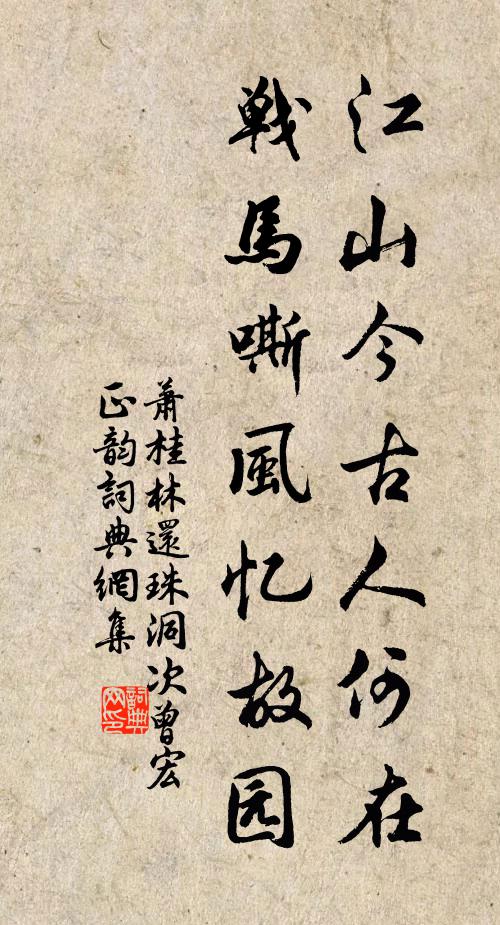 江山今古人何在
戦馬嘶風忆故园
蕭桂林還珠洞次曾宏
正韵詞典網集
詞典网印